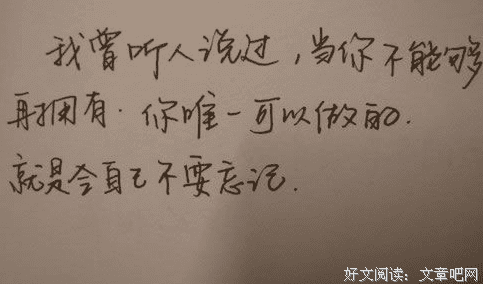 我曾听人说过，当你不能够
再拥有．你唯一可以做的．
就是令自己不要忘记．
好文阅读：文章吧网